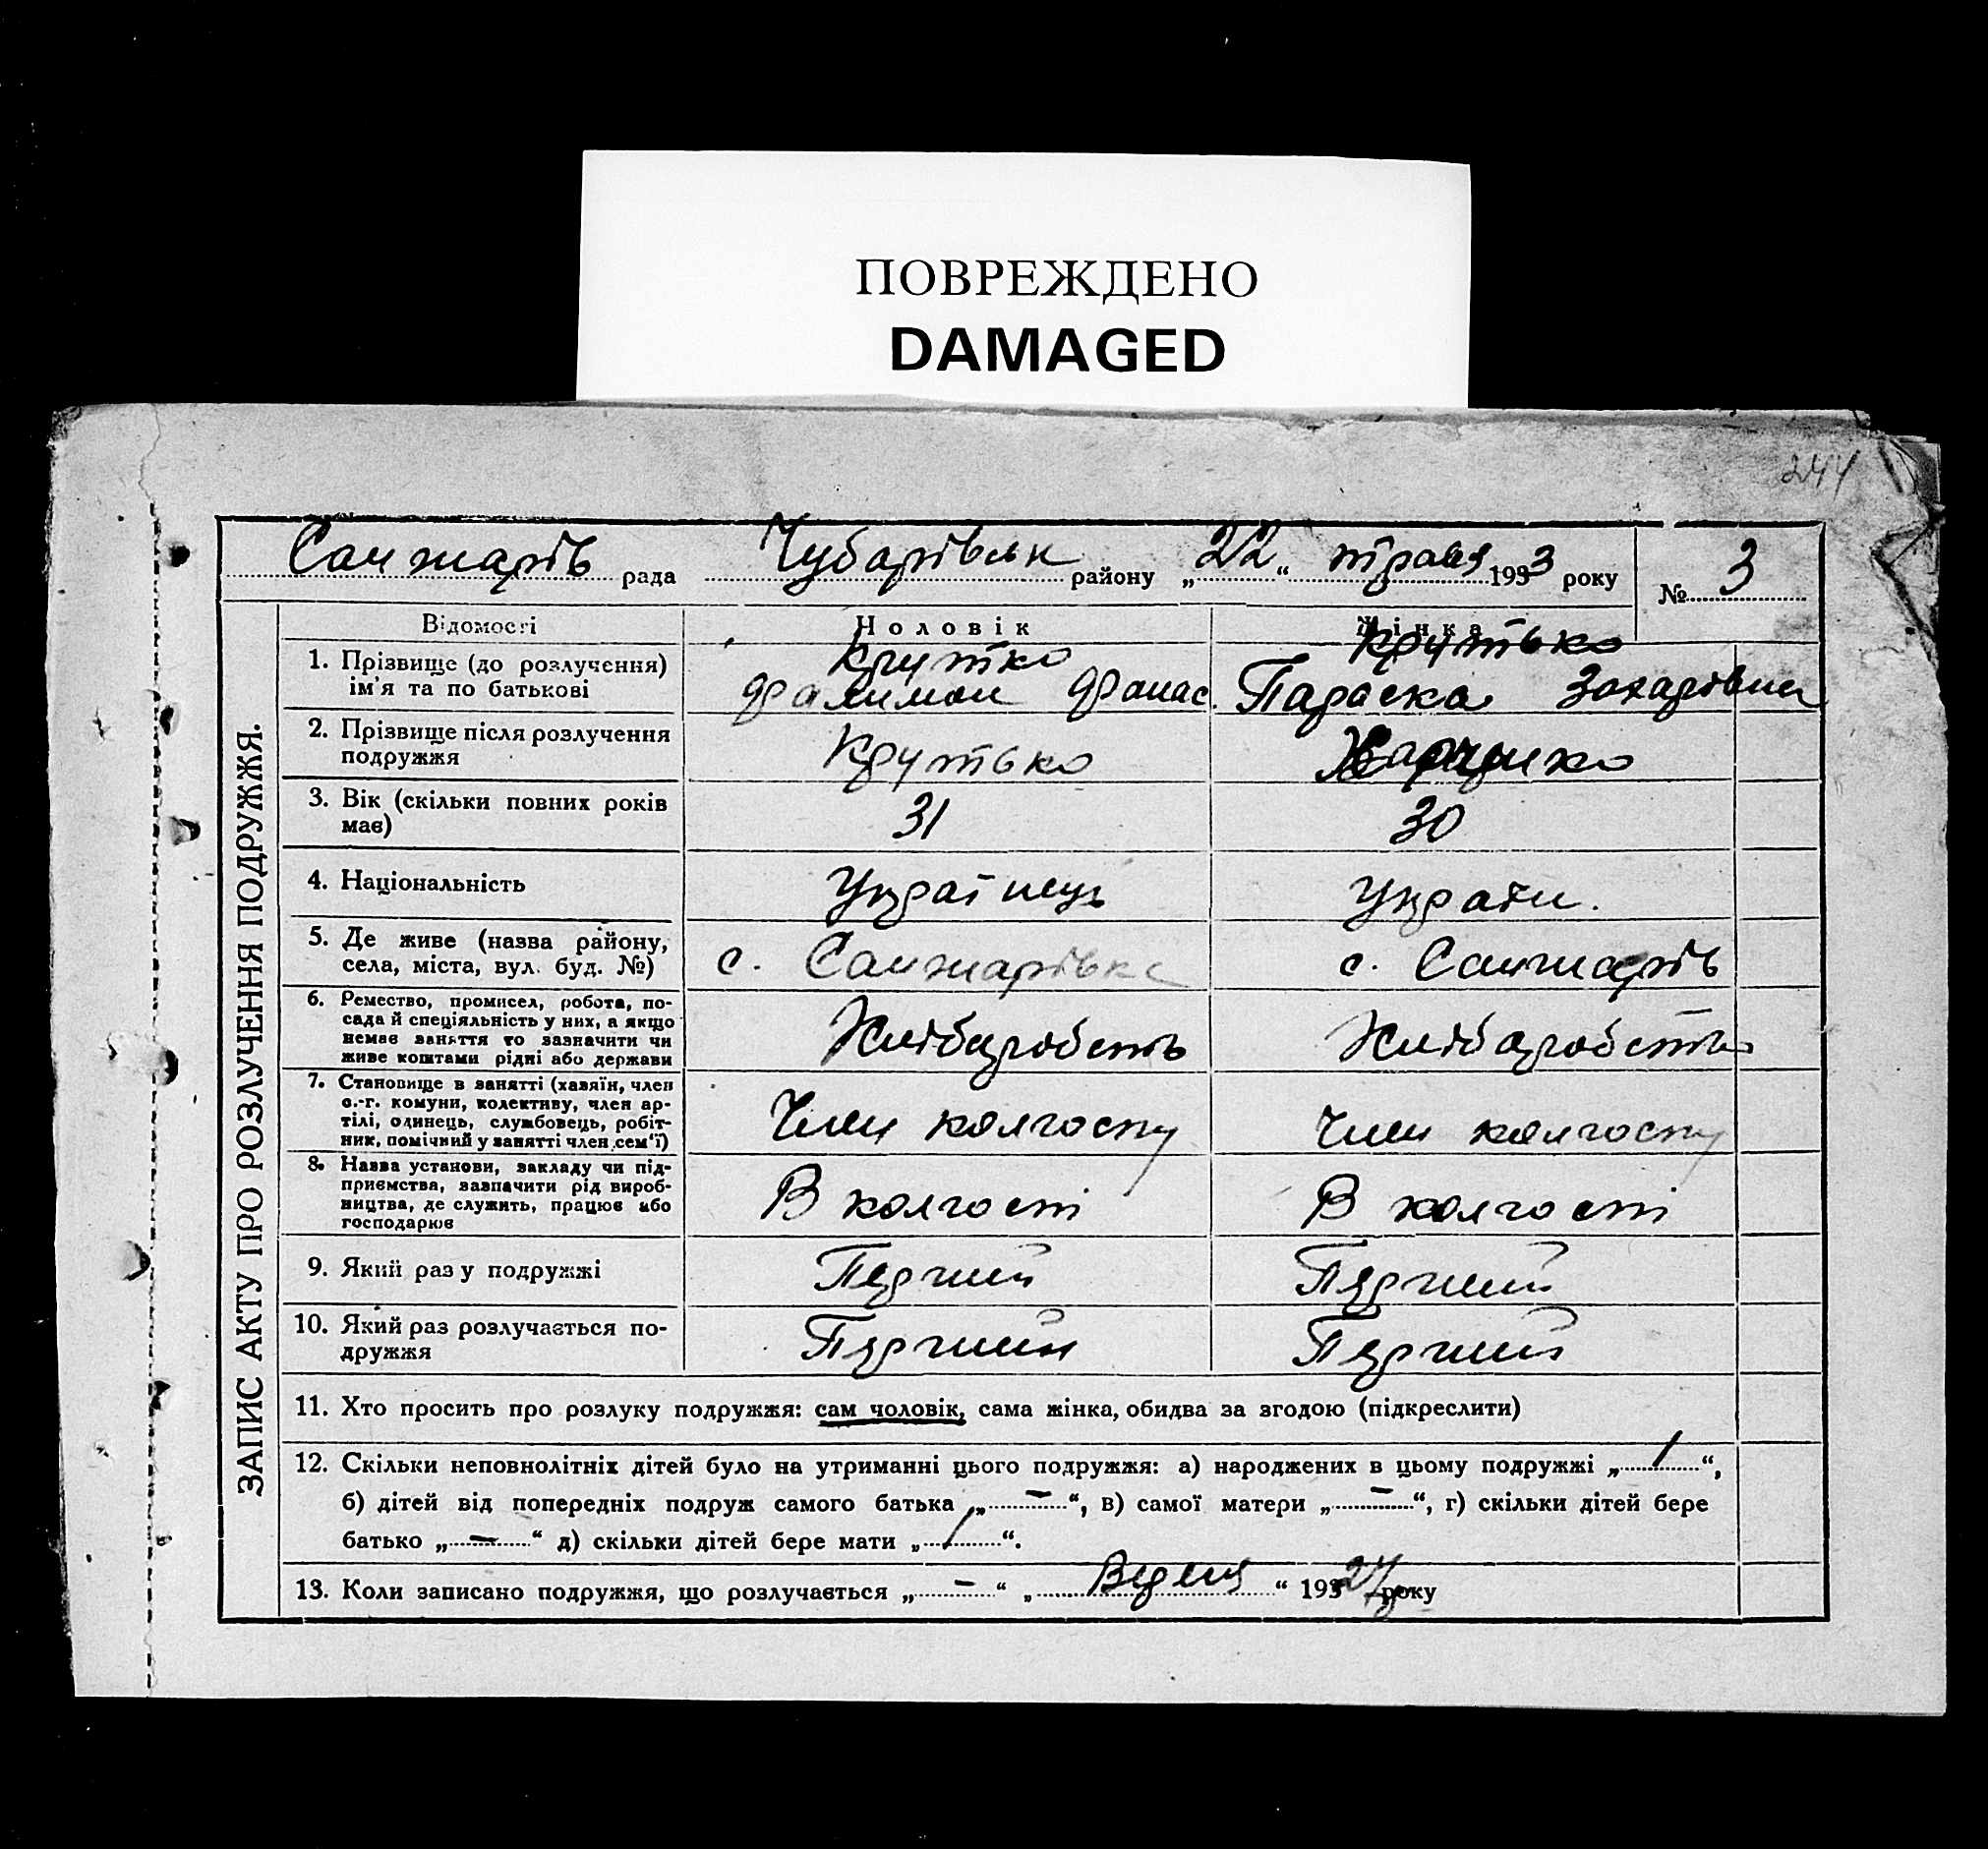 ПОВРЕЖДЕНО
DAMAGED
244
Санжарів рада Чубарівськ району „22“ травня 1933 року № 3
ЗАПИС АКТУ ПРО РОЗЛУЧЕННЯ ПОДРУЖЖЯ.
Відомості Чоловік Жінка
1. Прізвище (до розлучення) Крутко Крутько
ім'я та по батькові Фалимон Фанас. Параска Захарівна
2. Прізвище після розлучення
подружжя Крутько
3. Вік (скільки повних років
має) 31 30
4. Національність Українець Украін.
5. Де живе (назва району,
села, міста, вул. буд. №) с. Санжарівка с. Санжарів
6. Ремество, промисел, робота, по-
сада й спеціяльність у них, а якщо
немає заняття то зазначити чи
живе коштами рідні або держави Хлібаробств Хлібаробств
7. Становище в занятті (хазяїн, член
с.-г. комуни, колективу, член ар-
тілі, одинець, службовець, робіт-
ник, помічний у занятті член сем'ї) Член колгоспу Член колгоспу
8. Назва установи, закладу чи під-
приємства, зазначити рід вироб-
ництва, де служить, працює або
господарює В колгоспі В колгоспі
9. Який раз у подружжі Перший Перший
10. Який раз розлучається по-
дружжя Перший Перший
11. Хто просить про розлуку подружжя: сам чоловік, сама жінка, обидва за згодою (підкреслити)
12. Скільки неповнолітніх дітей було на утриманні цього подружжя: а) народжених в цьому подружжі „1“,
б) дітей від попередніх подруж самого батька „–“, в) самої матери „–“, г) скільки дітей бере
батько „–“ д) скільки дітей бере мати „1“.
13. Коли записано подружжя, що розлучається „–“ „ “ 193 року